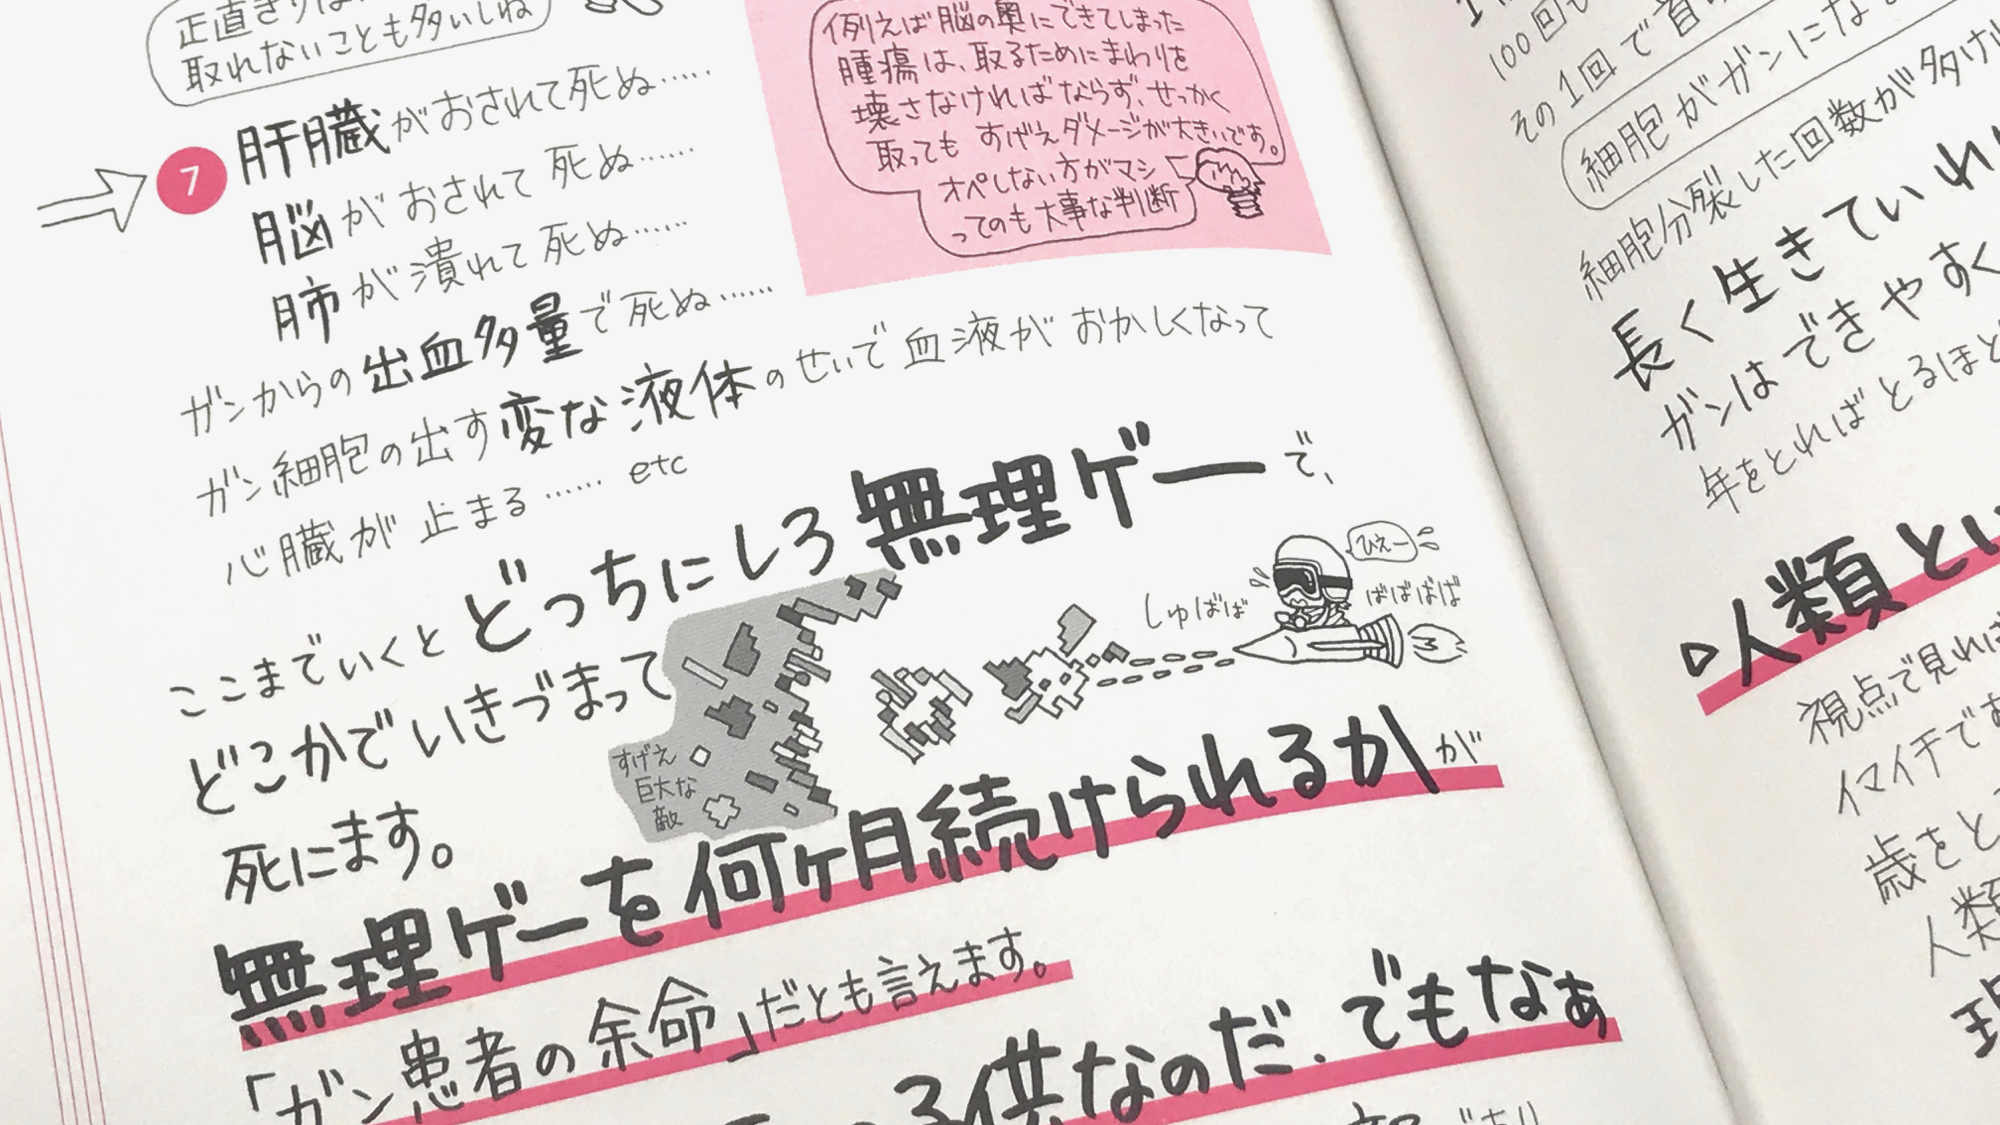 正直きりは
取れないことも多いしね
7
肝臓がおされて死ぬ……
脳がおされて死ぬ……
肺が潰れて死ぬ……
ガンからの出血多量で死ぬ……
ガン細胞の出す変な液体のせいで血液がおかしくなって
心臓が止まる…… etc
例えば脳の奥にできてしまった
腫瘍は、取るためにまわりを
壊さなければならず、せっかく
取っても すげえダメージが大きいです。
オペしない方がマシ
ってのも大事な判断
ここまでいくとどっちにしろ無理ゲーで、
どこかでいきづまって
死にます。
すげえ
巨大な
敵
しゅばば
ひえー
ばばばば
無理ゲーを何ヶ月続けられるかが
「ガン患者の余命」だとも言えます。
子供なのだ、でもなぁ
100回
その1回で
細胞がガンにな
細胞分裂した回数が多け
長く生きていれ
ガンはできやすく
年をとればとるほど
人類とい
視点で見れば
イマイチであ
歳をと
人類